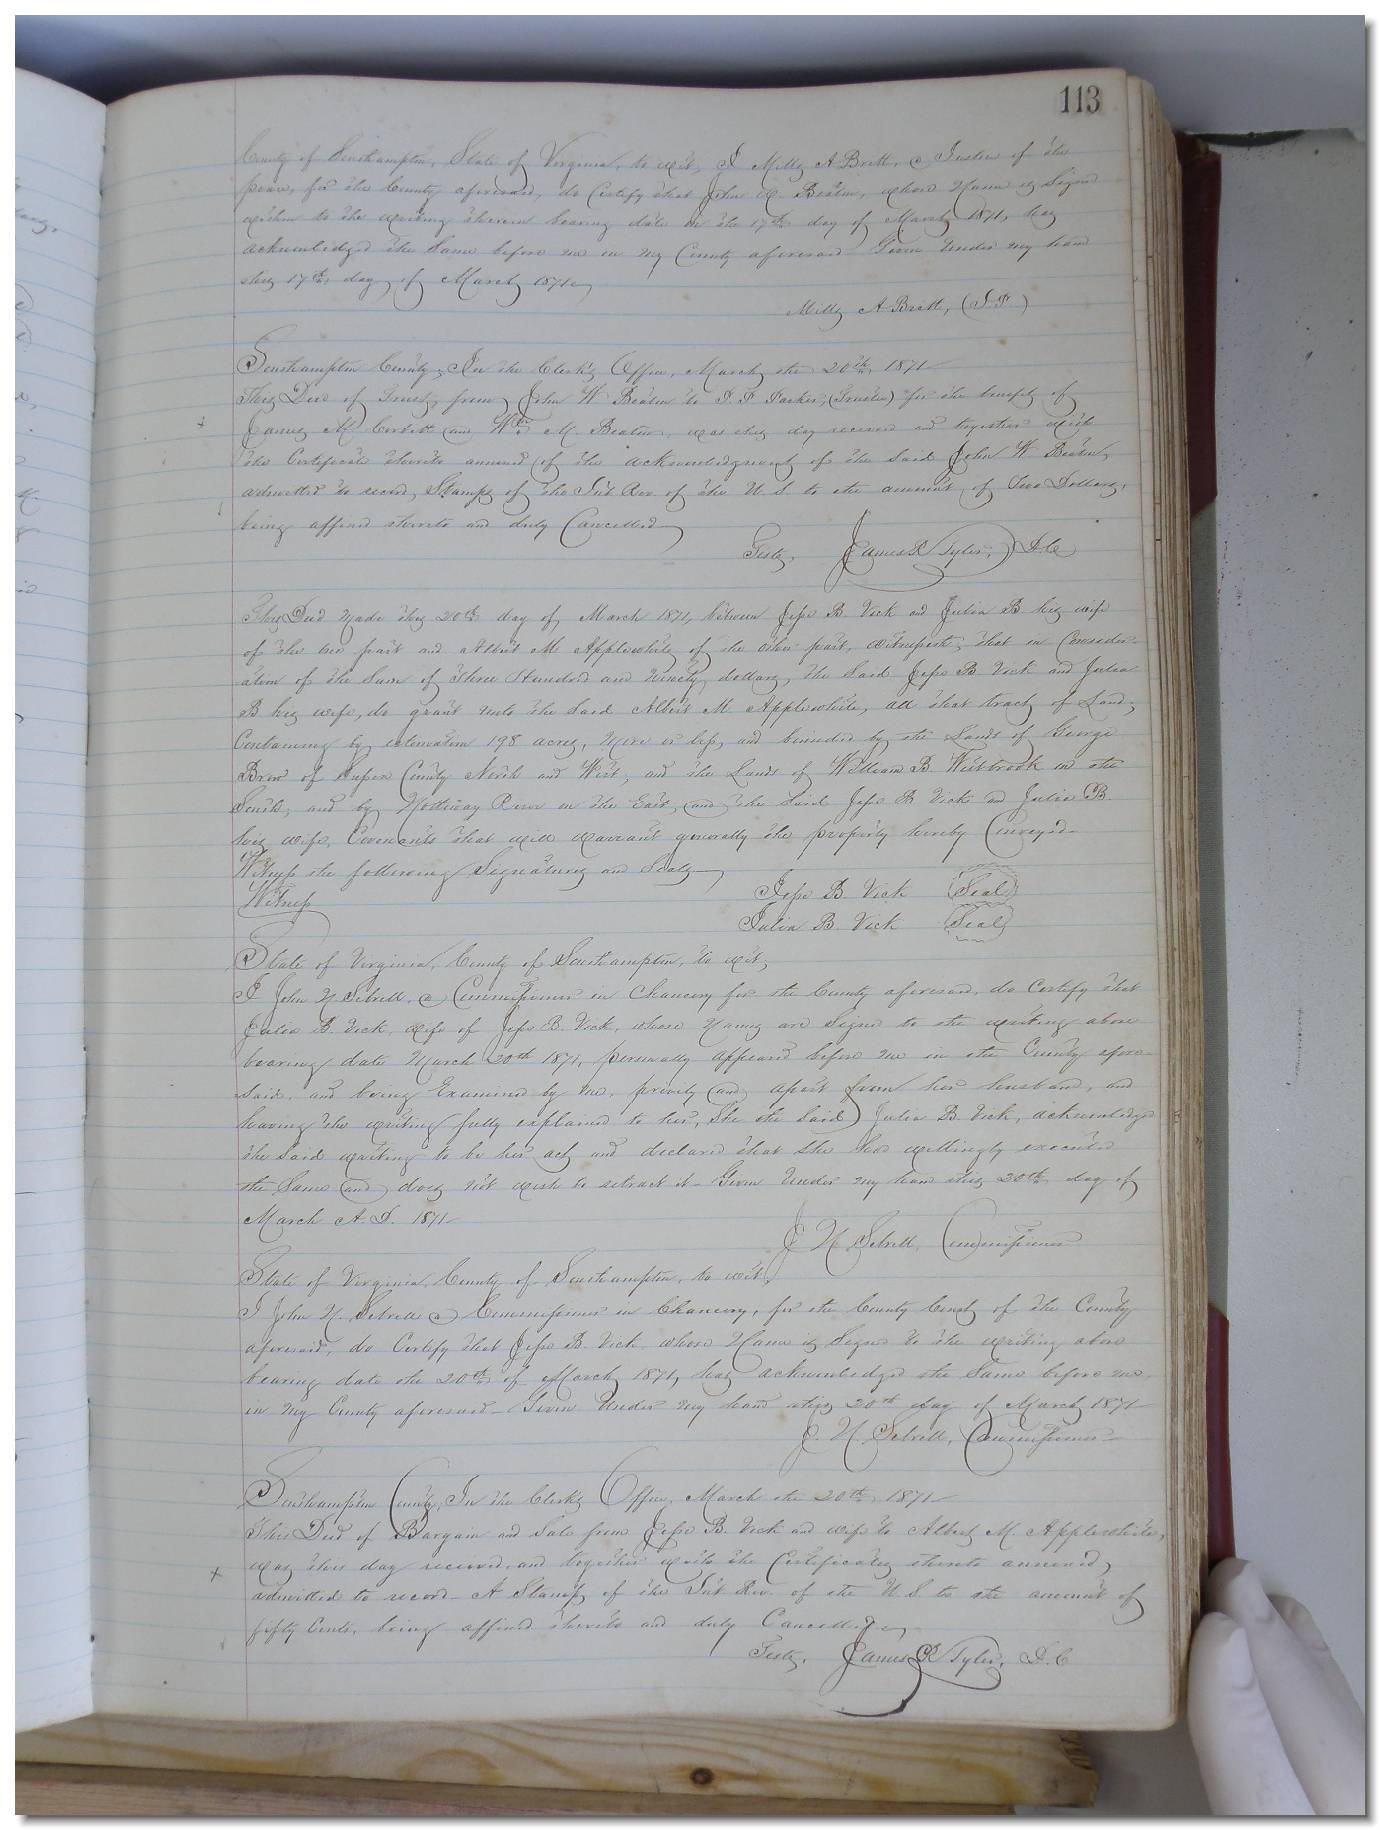 113
County of Southampton, State of Virginia, to wit, I Mills A Britt, a Justice of the
peace, for the County aforesaid, do Certify that John W. Beaton, whose Name is Signed
within to the writing therein bearing date on the 17th day of March 1871, has
acknowledged the Same before me in my County aforesaid Given Under my hand
this 17th, day, of March 1871
Mills A Britt, (J.P.)
Southampton County, In the Clerk's Office, March the 20th, 1871
This Deed of Trust, from John W Beaton to J. F. Parker, (Trustee) for the benefit of
James M. Corbitt and Wm M. Beaton, was this day received and together with
the Certificate thereto annexed of the acknowledgment of the Said John W Beaton,
admitted to record, Stamps of the Int Rev. of the U S. to the amount of Two Dollars,
being affixed thereto and duly Cancelled
Teste, James R Tyler, D.C
This Deed Made this 20th day of March 1871, between Jesse B. Vick and Julia B his wife
of the one part and Albert M Applewhite of the other part, witnesseth, that in Consider-
ation of the Sum of Three Hundred and Ninety dollars, the Said Jesse B Vick and Julia
B his wife, do grant unto the Said Albert M Applewhite, all that tract of Land,
Containing by estimation 198 acres, More or less, and bounded by the Lands of George
Brow of Sussex County North and West, and the Lands of William B Westbrook on the
South, and by Nottoway River on the East, and the Said Jesse B Vick and Julia B.
his wife, Covenants that will warrant generally the property hereby Conveyed
Witness the following Signatures and Seals
Witness
Jesse B Vick (Seal)
Julia B. Vick (Seal)
State of Virginia, County of Southampton, to wit,
I John N. Sebrell, a Commissioner in Chancery for the County aforesaid, do Certify that
Julia B. Vick, wife of Jesse B. Vick, whose Names are Signed to the writing above
bearing date March 20th 1871, personally appeared before me in the County afore-
said, and being Examined by me, privily and apart from her husband, and
having the writing fully explained to her, She the Said Julia B. Vick, acknowledged
the Said writing to be her act, and declared that She had willingly executed
the Same and does not wish to retract it Given Under my hand this 20th day of
March A.D. 1871
J N Sebrell, Commissioner
State of Virginia, County of Southampton, to wit,
I John N. Sebrell a Commissioner in Chancery, for the County Court of the County
aforesaid, do Certify that Jesse B. Vick, whose Name is Signed to the writing above
bearing date the 20th of March 1871, has acknowledged the Same before me,
in my County aforesaid Given Under my hand this 20th day of March 1871
J. N. Sebrell, Commissioner
Southampton County, In the Clerk's Office, March the 20th, 1871
This Deed of Bargain and Sale from Jesse B. Vick and wife to Albert M. Applewhite,
was this day received, and together with the Certificates thereto annexed,
admitted to record A Stamp of the Int Rev. of the U S. to the amount of
fifty Cents, being affixed thereto and duly Cancelled
Teste, James R Tyler, D.C